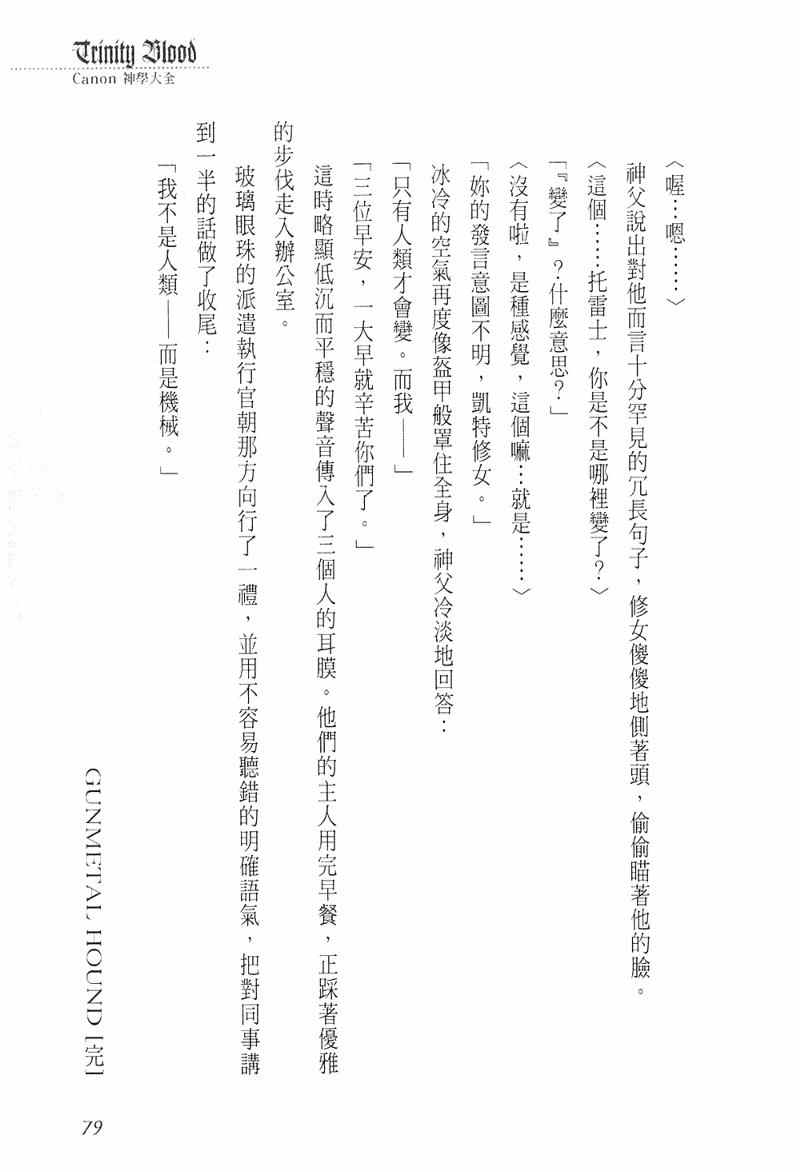 Trinity Blood
Canon 神學大全
〈喔…嗯……〉
神父說出對他而言十分罕見的冗長句子，修女傻傻地側著頭，偷偷瞄著他的臉。
〈這個……托雷士，你是不是哪裡變了？〉
「『變了』？什麼意思？」
〈沒有啦，是種感覺，這個嘛…就是……〉
「妳的發言意圖不明，凱特修女。」
冰冷的空氣再度像盔甲般罩住全身，神父冷淡地回答：
「只有人類才會變。而我——」
「三位早安，一大早就辛苦你們了。」
這時略顯低沉而平穩的聲音傳入了三個人的耳膜。他們的主人用完早餐，正踩著優雅
的步伐走入辦公室。
玻璃眼珠的派遣執行官朝那方向行了一禮，並用不容易聽錯的明確語氣，把對同事講
到一半的話做了收尾：
「我不是人類——而是機械。」
GUNMETAL HOUND [完]
79